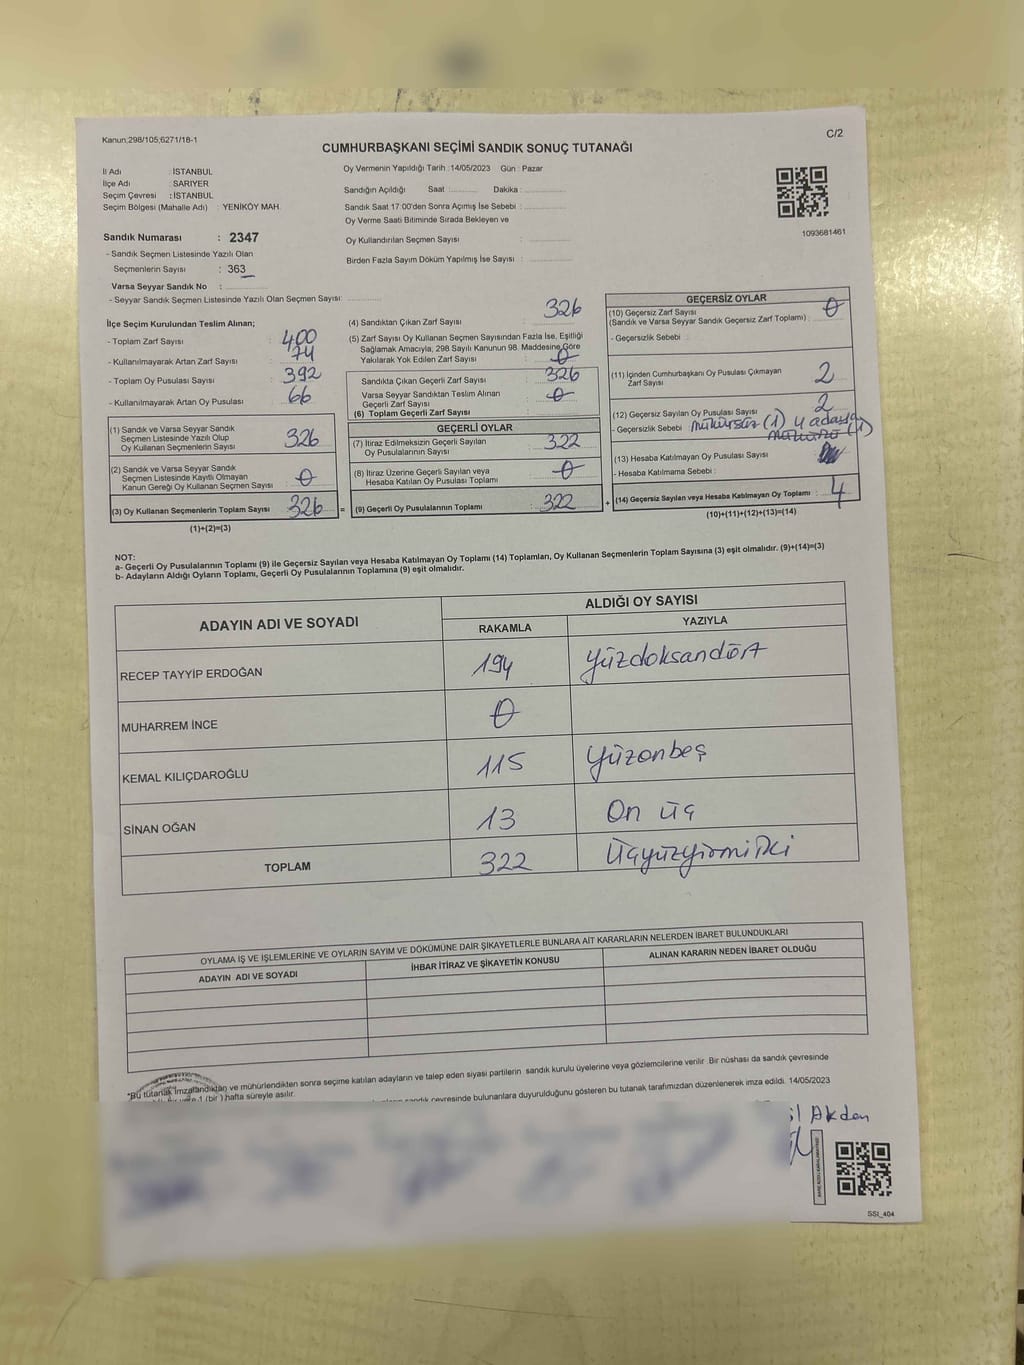 Kanun;298/105,6271/18-1
C/2
CUMHURBAŞKANI SEÇİMİ SANDIK SONUÇ TUTANAĞI
İl Adı : İSTANBUL
İlçe Adı : SARIYER
Seçim Çevresi : İSTANBUL
Seçim Bölgesi (Mahalle Adı) : YENİKÖY MAH.
Sandık Numarası : 2347
- Sandık Seçmen Listesinde Yazılı Olan
Seçmenlerin Sayısı : 363
Varsa Seyyar Sandık No :
- Seyyar Sandık Seçmen Listesinde Yazılı Olan Seçmen Sayısı:
Oy Vermenin Yapıldığı Tarih : 14/05/2023 Gün : Pazar
Sandığın Açıldığı Saat : Dakika :
Sandık Saat 17:00'den Sonra Açımış İse Sebebi :
Oy Verme Saati Bitiminde Sırada Bekleyen ve
Oy Kullandırılan Seçmen Sayısı :
Birden Fazla Sayım Döküm Yapılmış İse Sayısı :
1093681461
İlçe Seçim Kurulundan Teslim Alınan;
- Toplam Zarf Sayısı : 400
- Kullanılmayarak Artan Zarf Sayısı : 74
- Toplam Oy Pusulası Sayısı : 392
- Kullanılmayarak Artan Oy Pusulası : 66
(1) Sandık ve Varsa Seyyar Sandık
Seçmen Listesinde Yazılı Olup
Oy Kullanan Seçmenlerin Sayısı : 326
(2) Sandık ve Varsa Seyyar Sandık
Seçmen Listesinde Kayıtlı Olmayan
Kanun Gereği Oy Kullanan Seçmen Sayısı : 0
(3) Oy Kullanan Seçmenlerin Toplam Sayısı : 326 =
(1)+(2)=(3)
(4) Sandıktan Çıkan Zarf Sayısı : 326
(5) Zarf Sayısı Oy Kullanan Seçmen Sayısından Fazla İse, Eşitliği
Sağlamak Amacıyla; 298 Sayılı Kanunun 98. Maddesine Göre
Yakılarak Yok Edilen Zarf Sayısı : 0
Sandıkta Çıkan Geçerli Zarf Sayısı : 326
Varsa Seyyar Sandıktan Teslim Alınan
Geçerli Zarf Sayısı : 0
(6) Toplam Geçerli Zarf Sayısı :
GEÇERLİ OYLAR
(7) İtiraz Edilmeksizin Geçerli Sayılan
Oy Pusulasının Sayısı : 322
(8) İtiraz Üzerine Geçerli Sayılan veya
Hesaba Katılan Oy Pusulası Toplamı : 0
(9) Geçerli Oy Pusulalarının Toplamı : 322 +
GEÇERSİZ OYLAR
(10) Geçersiz Zarf Sayısı
(Sandık ve Varsa Seyyar Sandık Geçersiz Zarf Toplamı) : 0
- Geçersizlik Sebebi :
(11) İçinden Cumhurbaşkanı Oy Pusulası Çıkmayan
Zarf Sayısı : 2
(12) Geçersiz Sayılan Oy Pusulası Sayısı : 2
- Geçersizlik Sebebi : mühürsüz (1) 4 adaya
(1)
(13) Hesaba Katılmayan Oy Pusulası Sayısı :
- Hesaba Katılmama Sebebi :
(14) Geçersiz Sayılan veya Hesaba Katılmayan Oy Toplamı : 4
(10)+(11)+(12)+(13)=(14)
NOT:
a- Geçerli Oy Pusulalarının Toplamı (9) ile Geçersiz Sayılan veya Hesaba Katılmayan Oy Toplamı (14) Toplamları, Oy Kullanan Seçmenlerin Toplam Sayısına (3) eşit olmalıdır. (9)+(14)=(3)
b- Adayların Aldığı Oyların Toplamı, Geçerli Oy Pusulalarının Toplamına (9) eşit olmalıdır.
ADAYIN ADI VE SOYADI
ALDIĞI OY SAYISI
RAKAMLA YAZIYLA
RECEP TAYYİP ERDOĞAN 194 Yüzdoksandört
MUHARREM İNCE 0
KEMAL KILIÇDAROĞLU 115 Yüzonbeş
SİNAN OĞAN 13 On üç
TOPLAM 322 Üçyüzyirmiiki
OYLAMA İŞ VE İŞLEMLERİNE VE OYLARIN SAYIM VE DÖKÜMÜNE DAİR ŞİKAYETLERLE BUNLARA AİT KARARLARIN NELERDEN İBARET BULUNDUKLARI
ADAYIN ADI VE SOYADI İHBAR İTİRAZ VE ŞİKAYETİN KONUSU ALINAN KARARIN NEDEN İBARET OLDUĞU
*Bu tutanak imzalandıktan ve mühürlendikten sonra seçime katılan adayların ve talep eden siyasi partilerin sandık kurulu üyelerine veya gözlemcilerine verilir .Bir nüshası da sandık çevresinde
1 (bir ) hafta süreyle asılır.
sandık çevresinde bulunanlara duyurulduğunu gösteren bu tutanak tarafımızdan düzenlenerek imza edildi. 14/05/2023
Akden
SSI_404